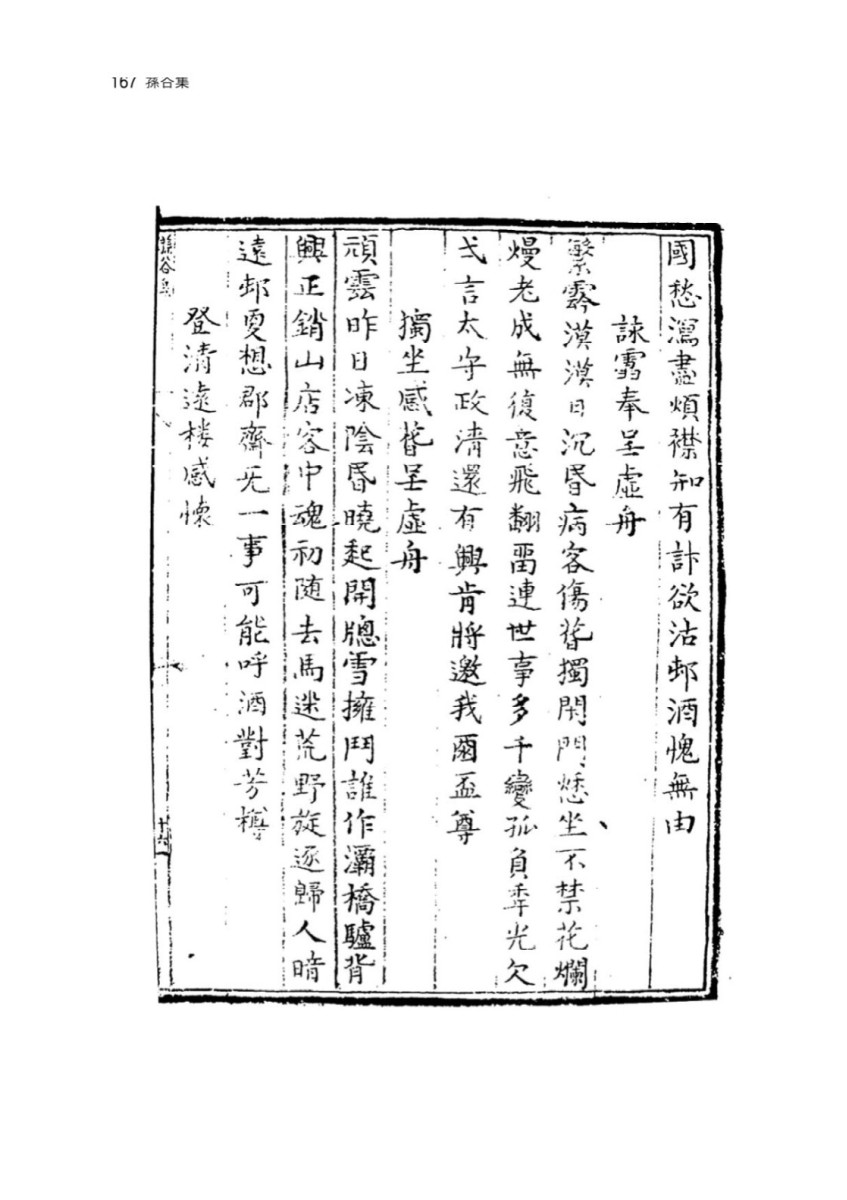 167 孫谷集
國愁瀉盡煩襟知有計欲沽邨酒愧無由
詠雪奉呈虛舟
繁雰漠漠日沉昏病客傷昝獨閑門愁坐不禁花爛
熳老成無復意飛翻畱連世事多千變孤負秊光欠
弌言太守政清還有興肯將邀我爾盃尊
獨坐感昝呈虛舟
頑雲昨日凍陰昏曉起開牕雪擁門誰作灞橋驢背
興正銷山店客中魂初随去馬迷荒野旋逐歸人暗
遠邨更想郡齋无一事可能呼酒對芳樽
登清遠樓感懷
十六